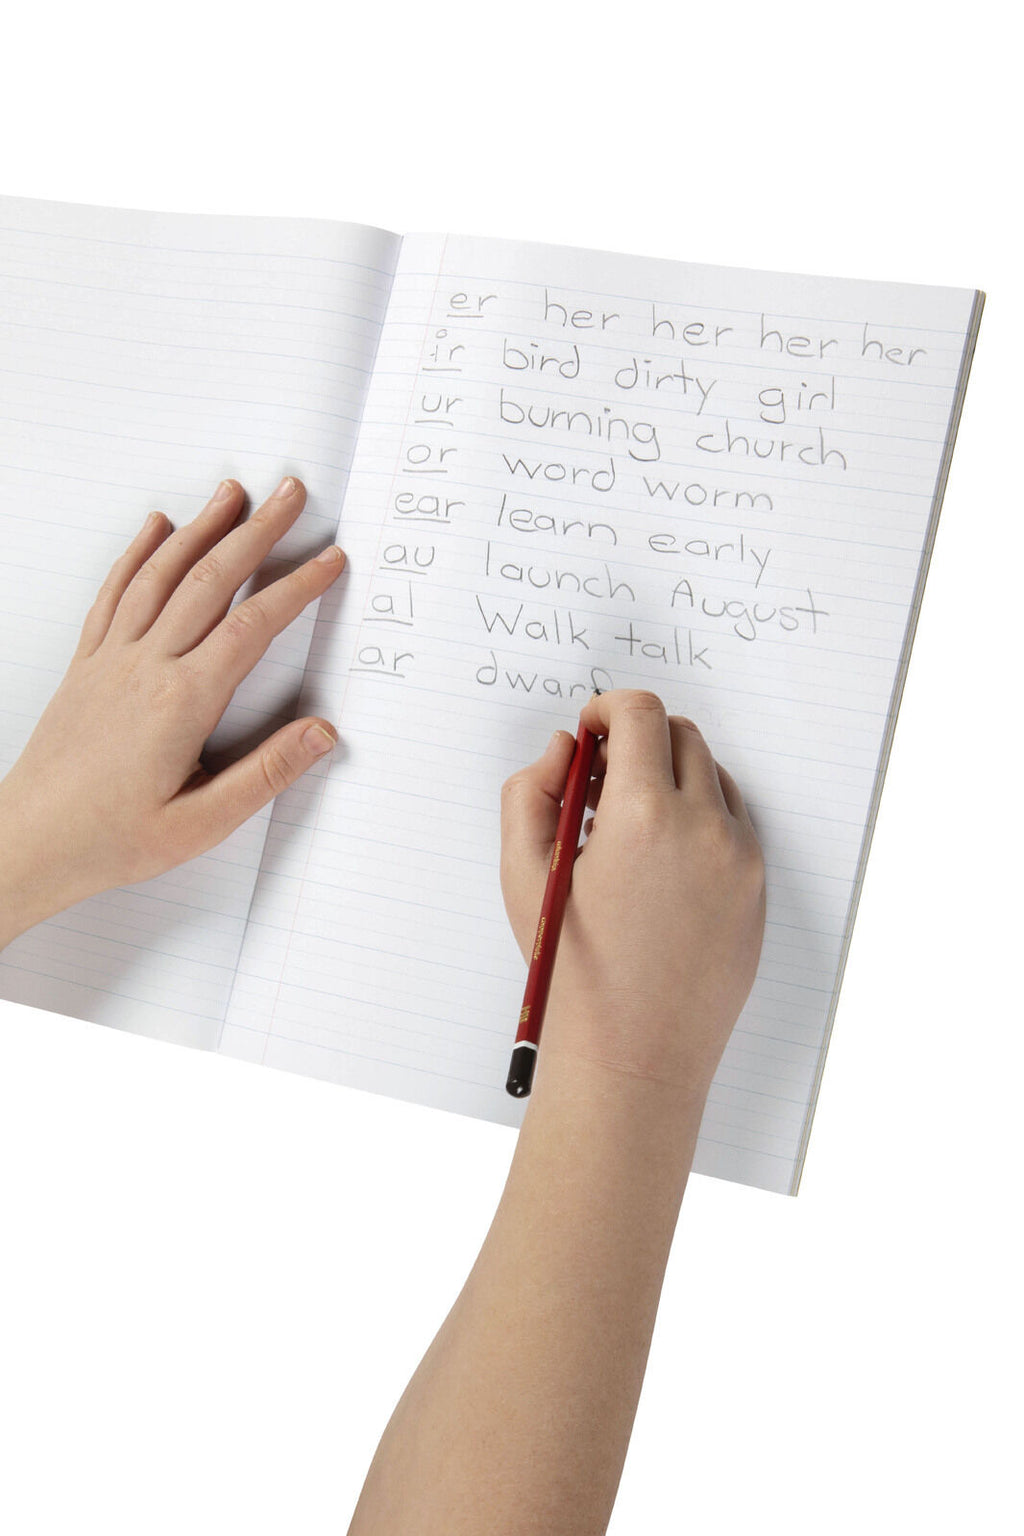 er her her her her
ir bird dirty girl
ur burning church
or word worm
ear learn early
au launch August
al Walk talk
ar dwarf